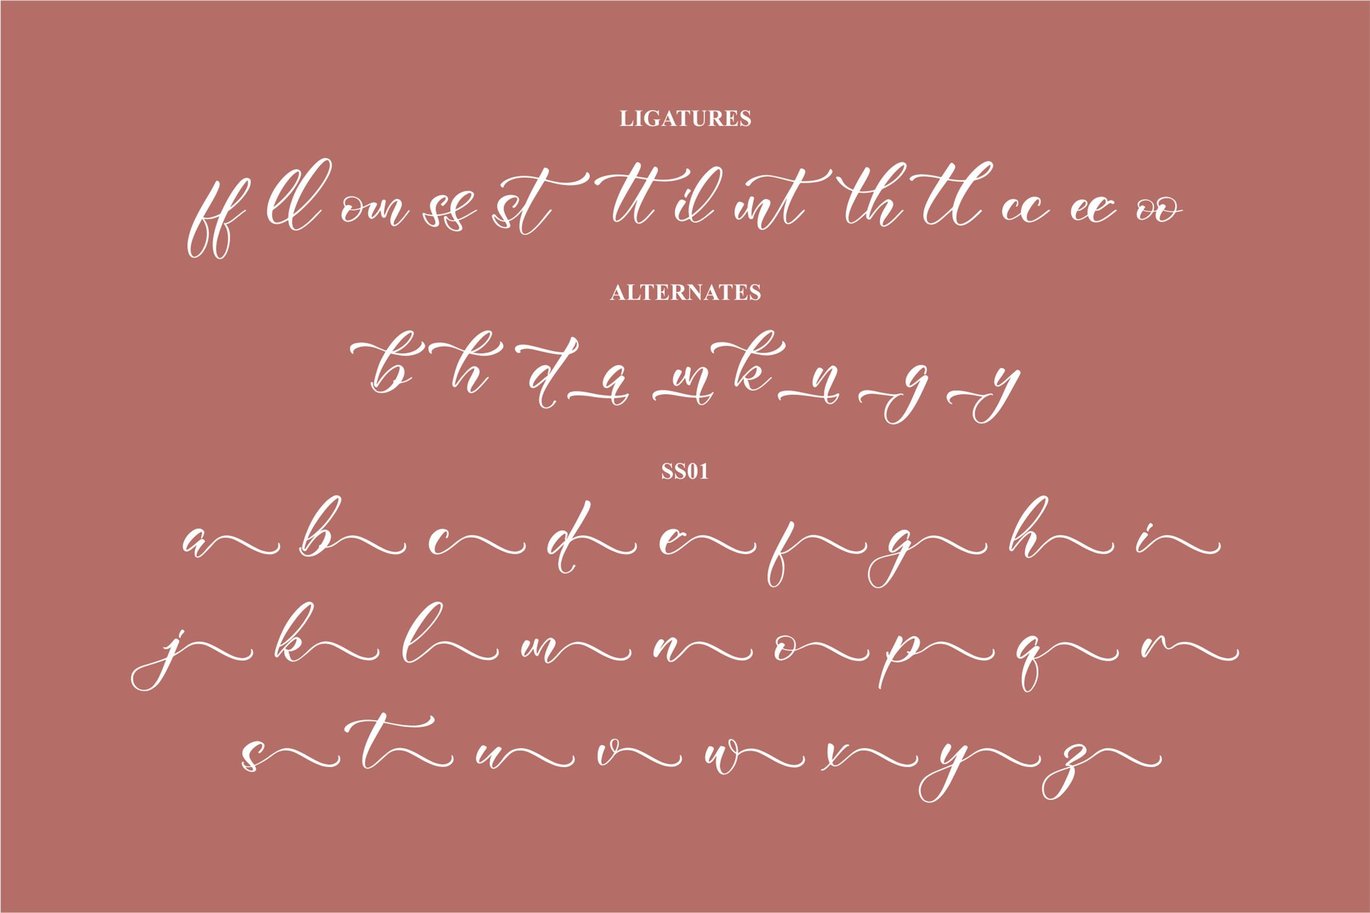 LIGATURES
ff ll om ss st tt il int th tl cc ee oo
ALTERNATES
b h d a m k n g y
SS01
a b c d e f g h i
j k l m n o p q r
s t u v w x y z